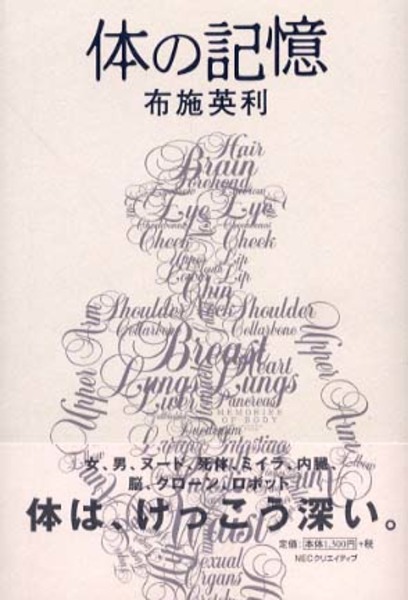 体の記憶
布施英利
Hair
Brain
Forehead
Eye Eye
Cheekbones Cheekbones
Cheek Cheek
Upper Lip
Lower Lip
Chin
Shoulder Neck Shoulder
Collarbone Collarbone
Upper Arm Upper Arm
Breast
Heart
Lungs Lungs
Liver Stomach Pancreas
MEMORIES
OF BODY
Elbow
女、男、ヌード、死体、ミイラ、内臓、
脳、クローン、ロボット
体は、けっこう深い。
定価:本体1,500円+税
NECクリエイティブ
Sexual
Organs